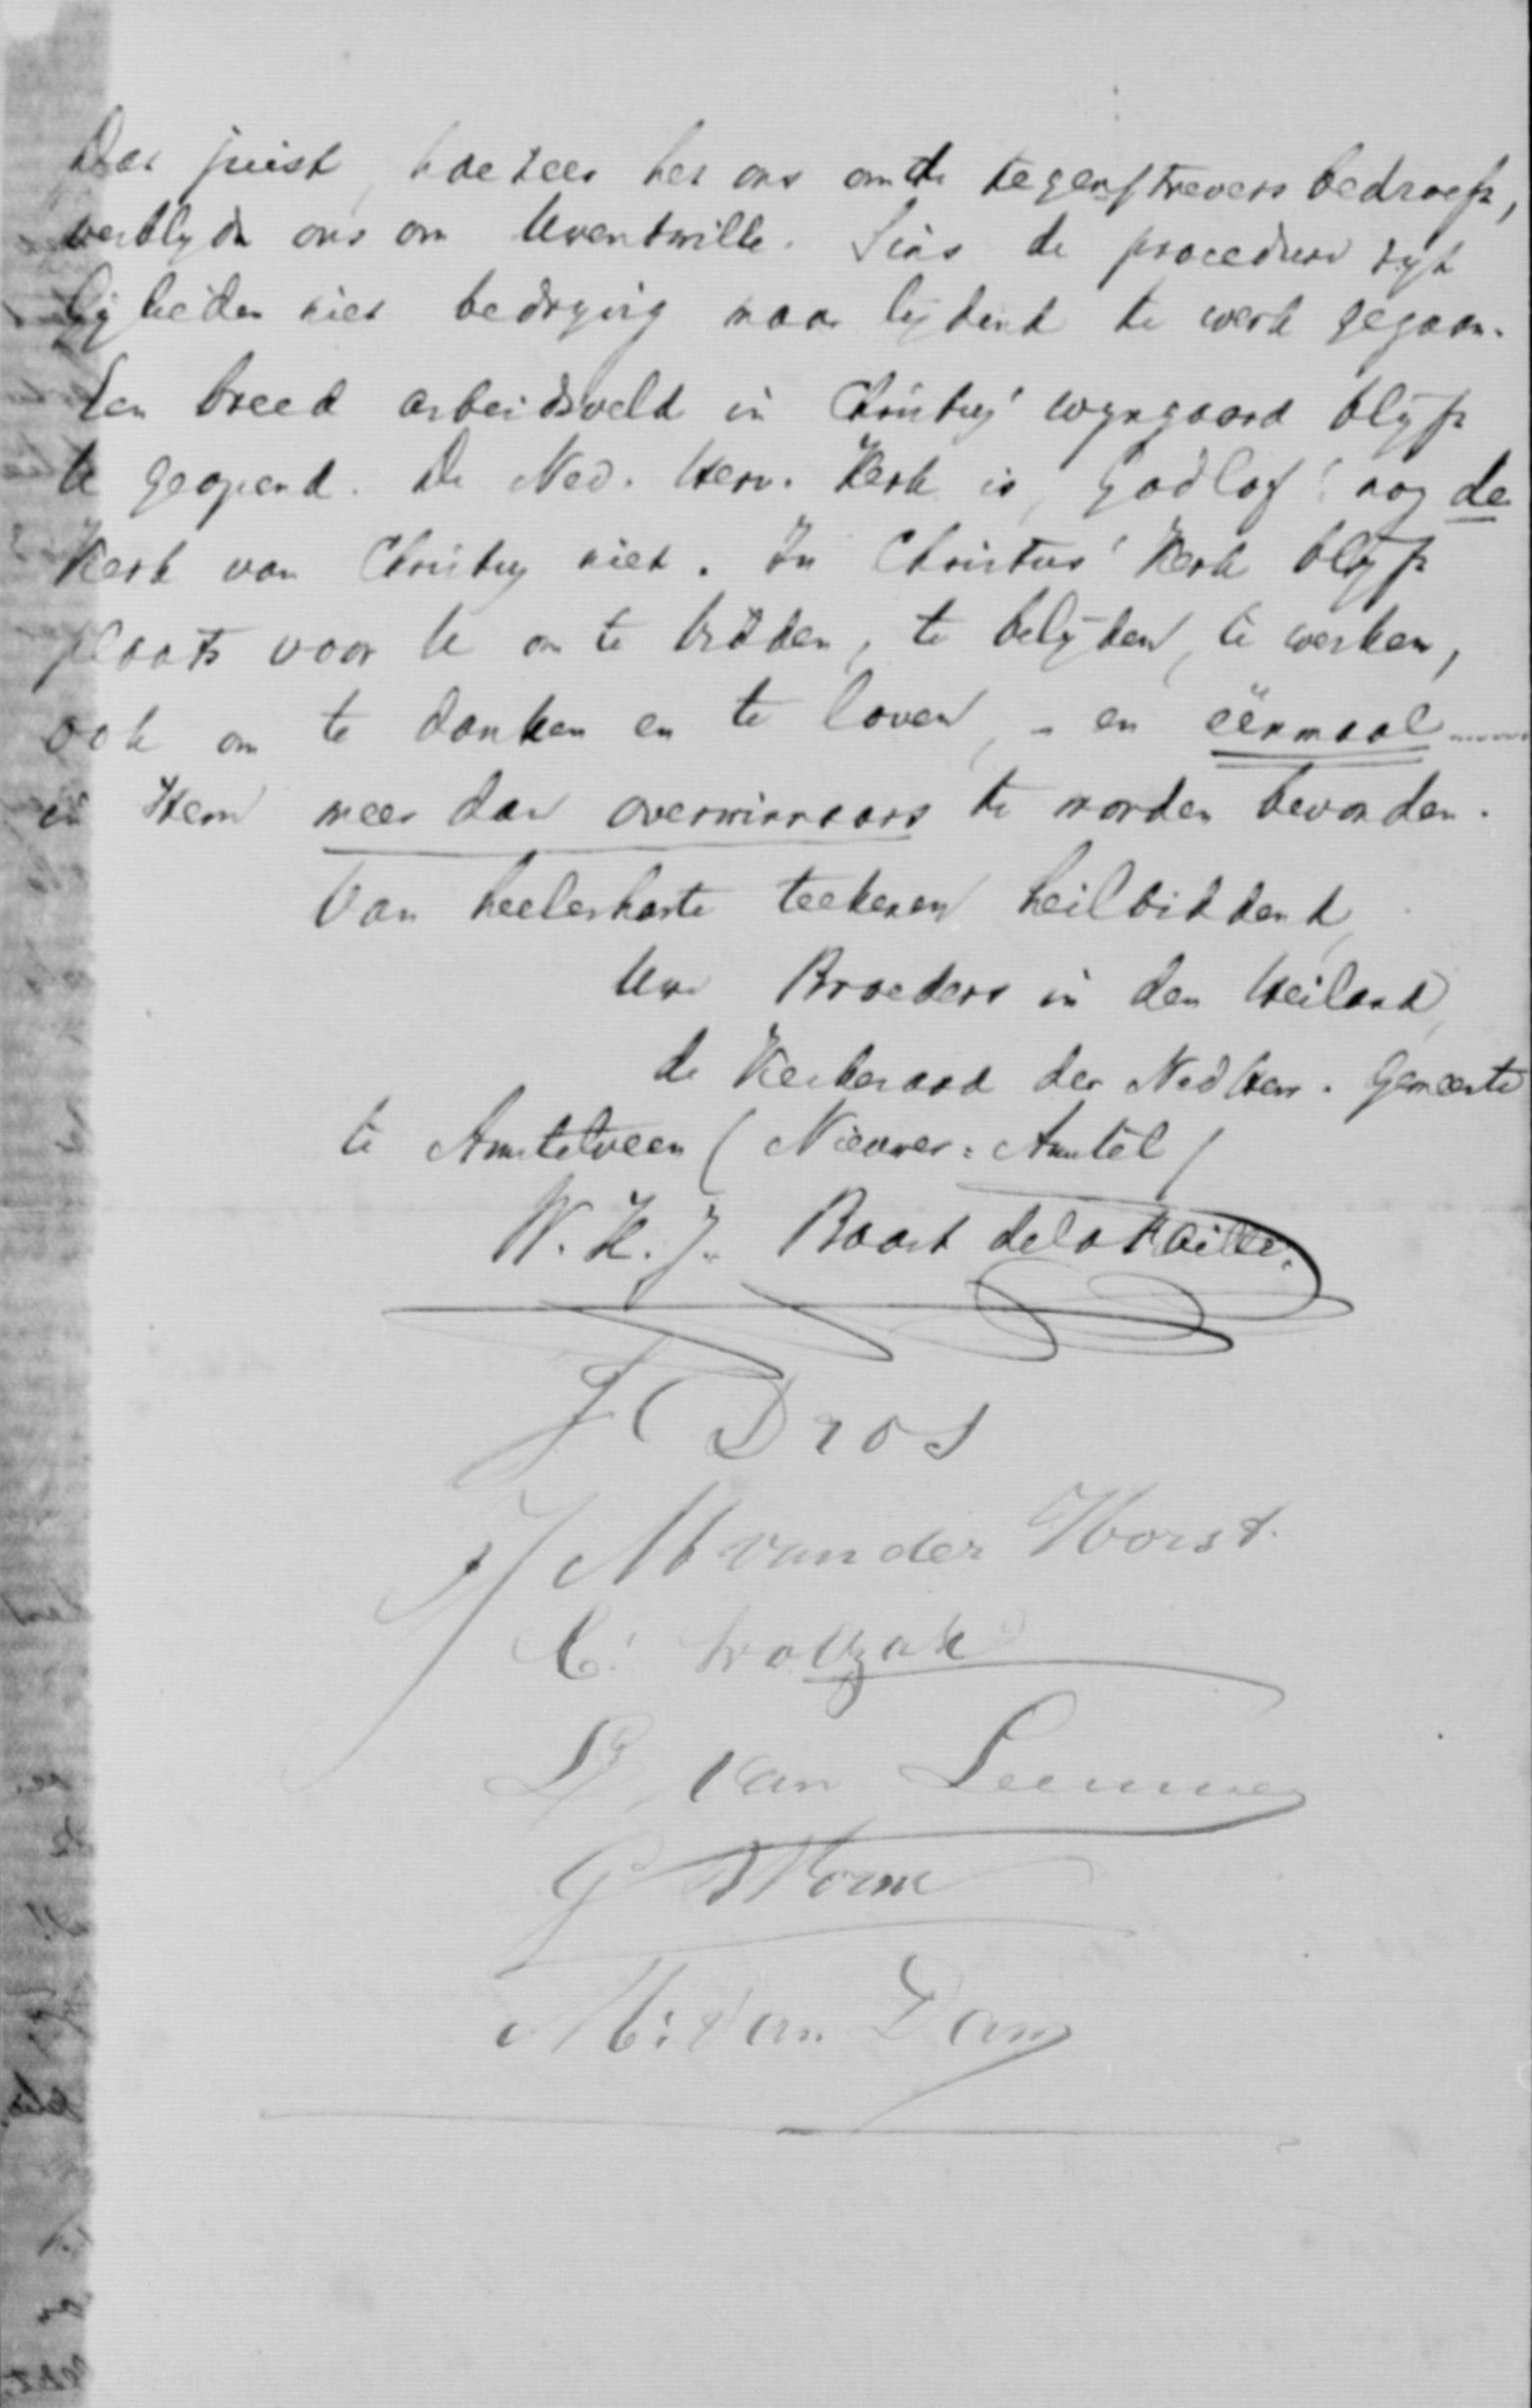 Dat juist, hoezeer het ons om de tegenstrevers bedroeft,
verblydt ons om Uwentwille. Sinds de procedure zyt
Gylieden niet bedrijvig maar lijdend te werk gegaan.
Een breed arbeidsveld in Christus' wyngaard blijft
U geopend. De Ned. Herv. Kerk is, Godlof! nog de
Kerk van Christus niet. In Christus' Kerk blyft
plaats voor U om te bidden, te belijden, te werken,
ook om te danken en te loven, - en éénmaal......
in Hem meer dan overwinnaars te worden bevonden.
Van heelerharte teekenen heilbiddend,
Uwe Broeders in den Heiland,
de Kerkeraad der Ned Herv. Gemeente
te Amstelveen (Nieuwer=Amstel)
W. H. J. Baart de la Faille.
J C Dros
J M van der Horst.
C. Wolzak
L. van Leeuwen
G Storm
M: van Dam